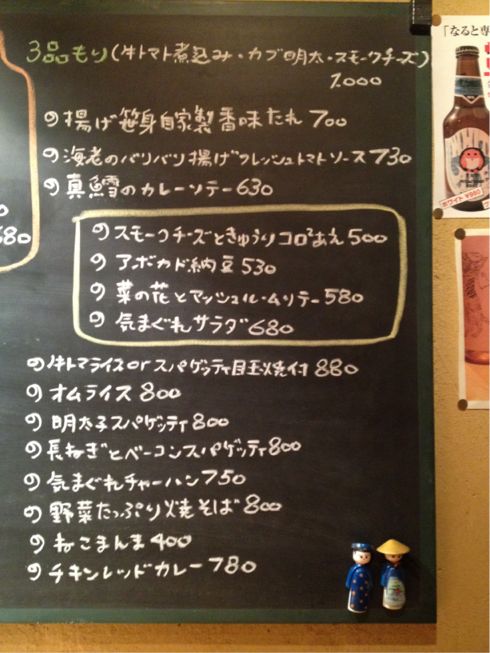 3品もり(牛トマト煮込み・カブ明太・スモークチーズ)
1,000
の揚げ笹身自家製香味たれ 700
の海老のバリバリ揚げフレッシュトマトソース 730
の真鱈のカレーソテー 630
のスモークチーズときゅうりコロコロあえ 500
のアボカド納豆 530
の菜の花とマッシュルームソテー 580
の気まぐれサラダ 680
の牛トマライスorスパゲッティ目玉焼付 880
のオムライス 800
の明太子スパゲッティ 800
の長ねぎとベーコンスパゲッティ 800
の気まぐれチャーハン 750
の野菜たっぷり焼そば 800
のねこまんま 400
のチキンレッドカレー 780
680
「なると専
ホワイト ¥950